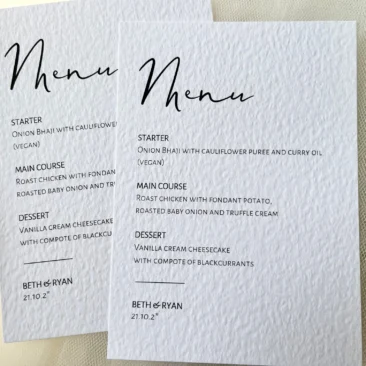 Menu
STARTER
ONION BHAJI WITH CAULIFLOWER
(VEGAN)
MAIN COURSE
ROAST CHICKEN WITH FONDAN
ROASTED BABY ONION AND TRU
DESSERT
VANILLA CREAM CHEESECAKE
WITH COMPOTE OF BLACKCUR
BETH & RYAN
21.10.2*
Menu
STARTER
ONION BHAJI WITH CAULIFLOWER PUREE AND CURRY OIL
(VEGAN)
MAIN COURSE
ROAST CHICKEN WITH FONDANT POTATO,
ROASTED BABY ONION AND TRUFFLE CREAM
DESSERT
VANILLA CREAM CHEESECAKE
WITH COMPOTE OF BLACKCURRANTS
BETH & RYAN
21.10.2*